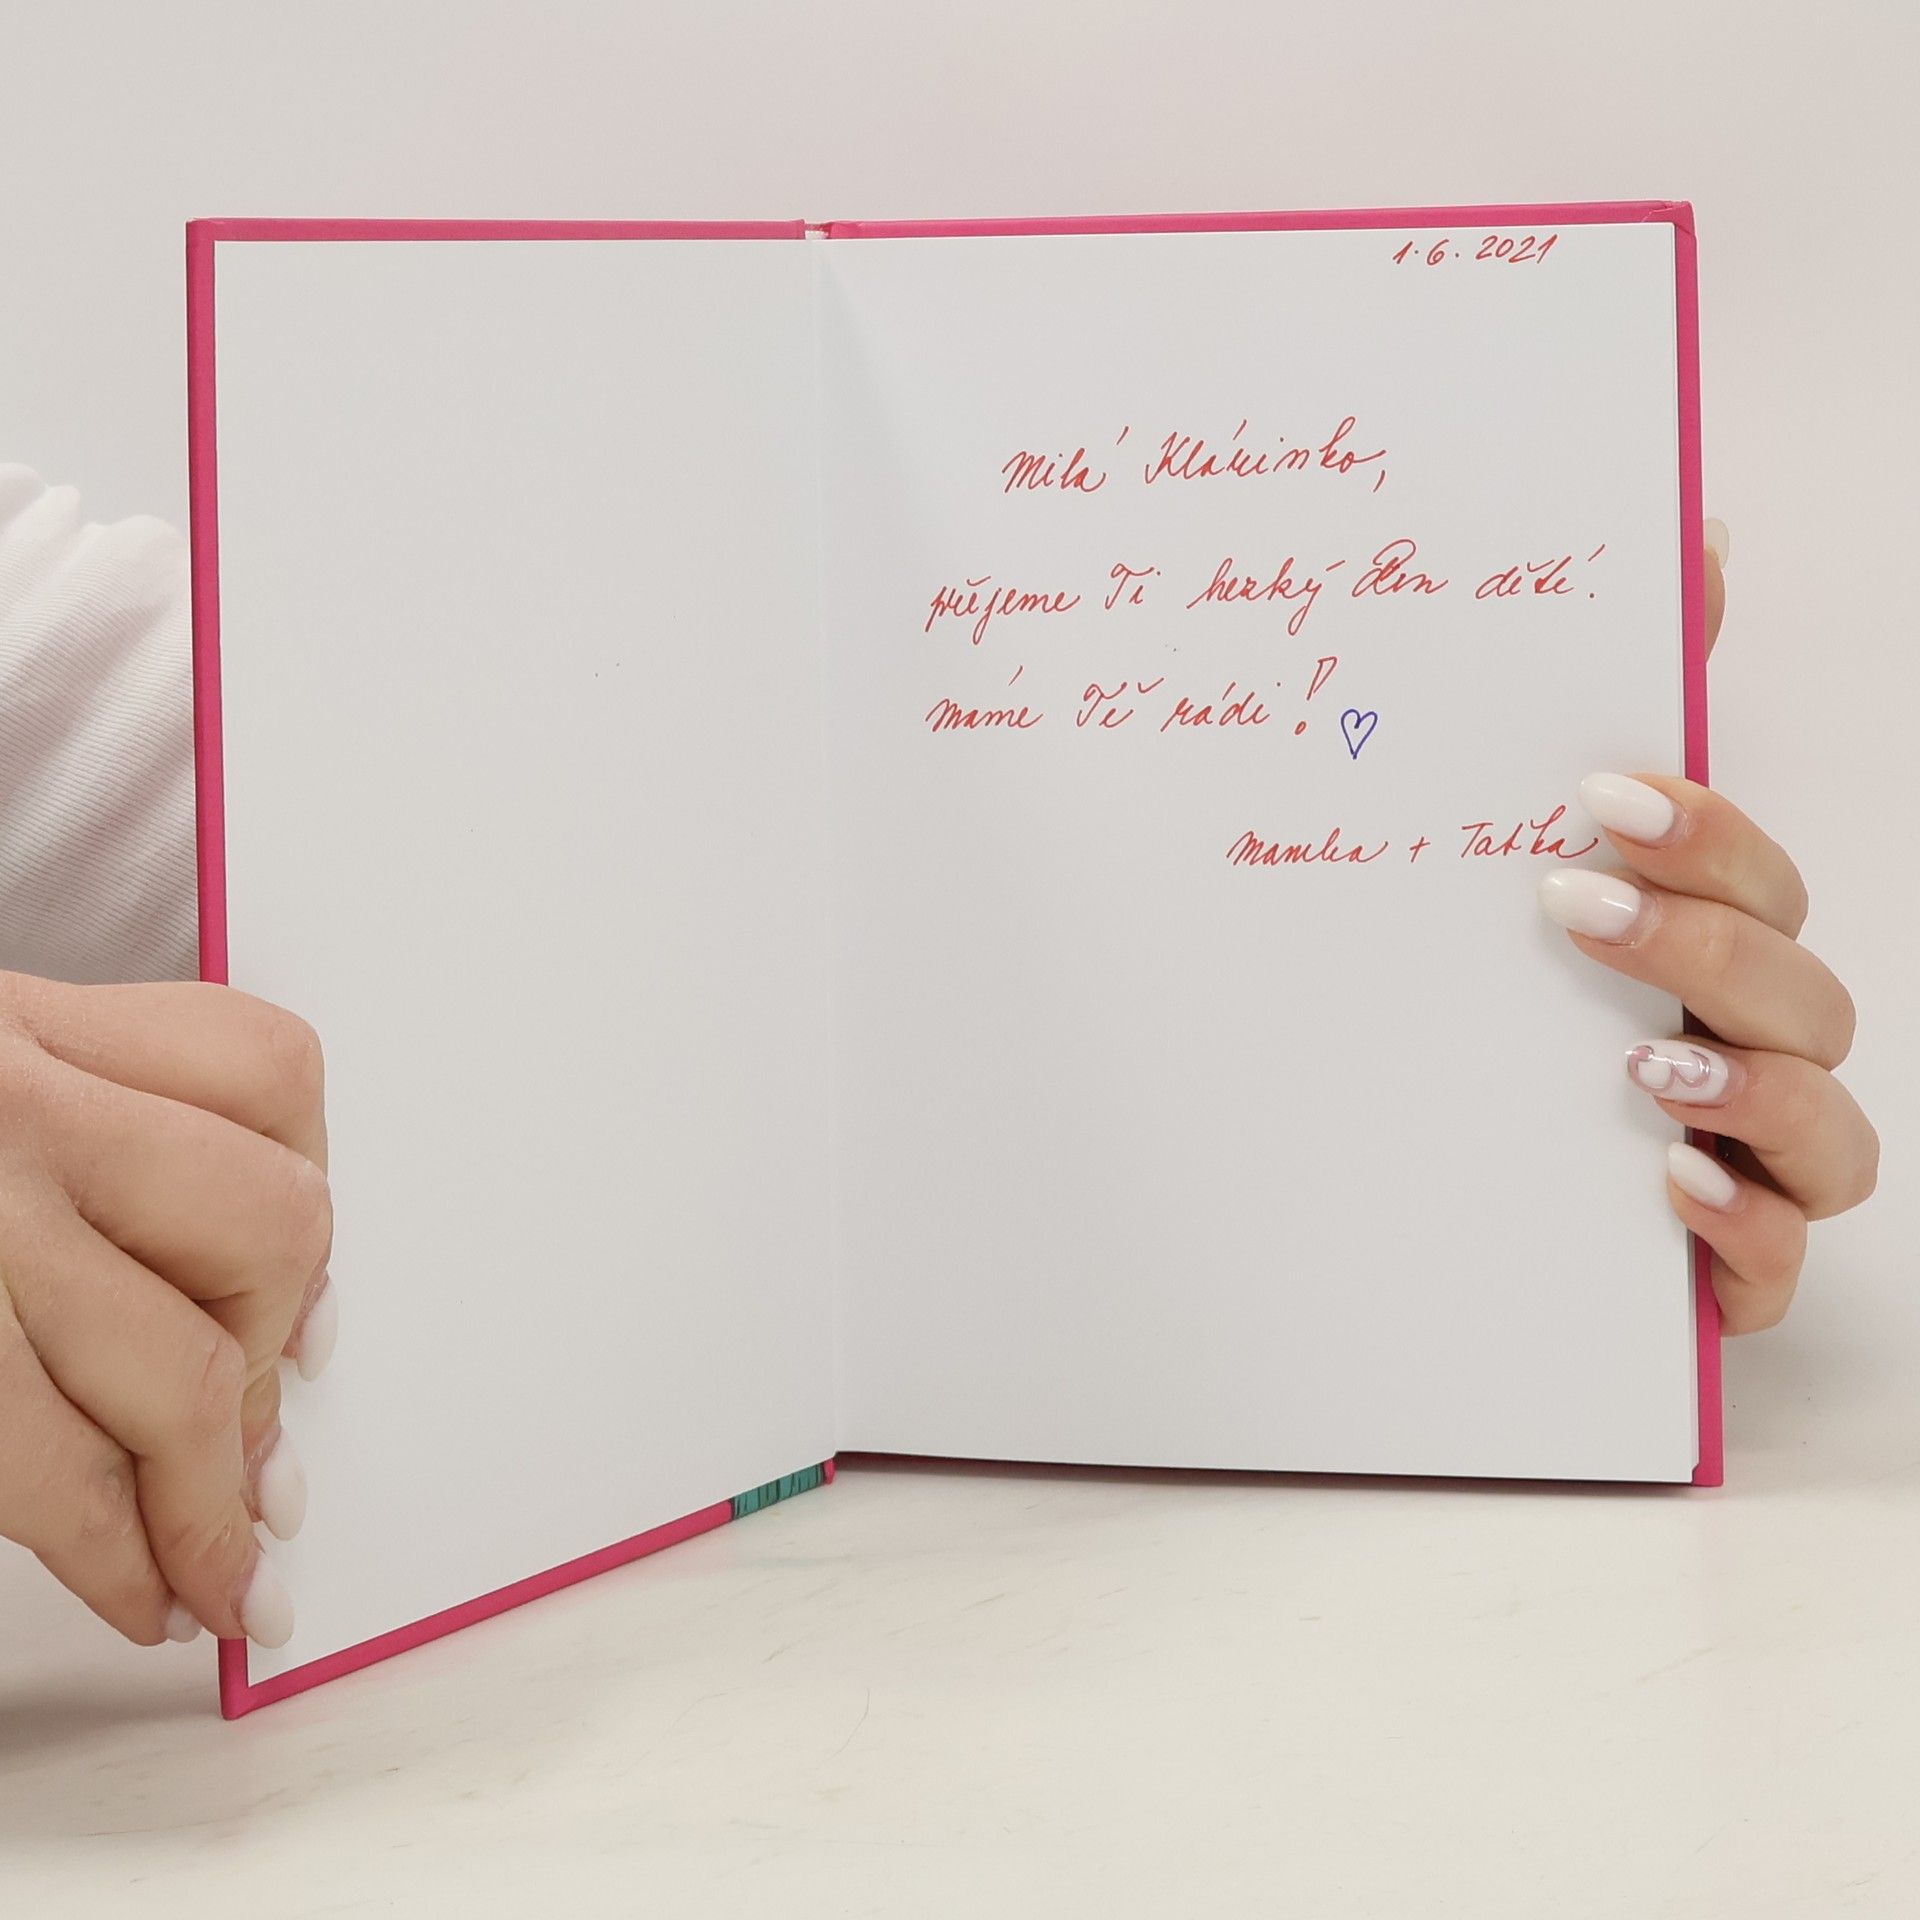 1.6.2021
Milá Klárinko,
přejeme Ti hezký Den dětí.
Máme Tě rádi!
Mamka + Taťka